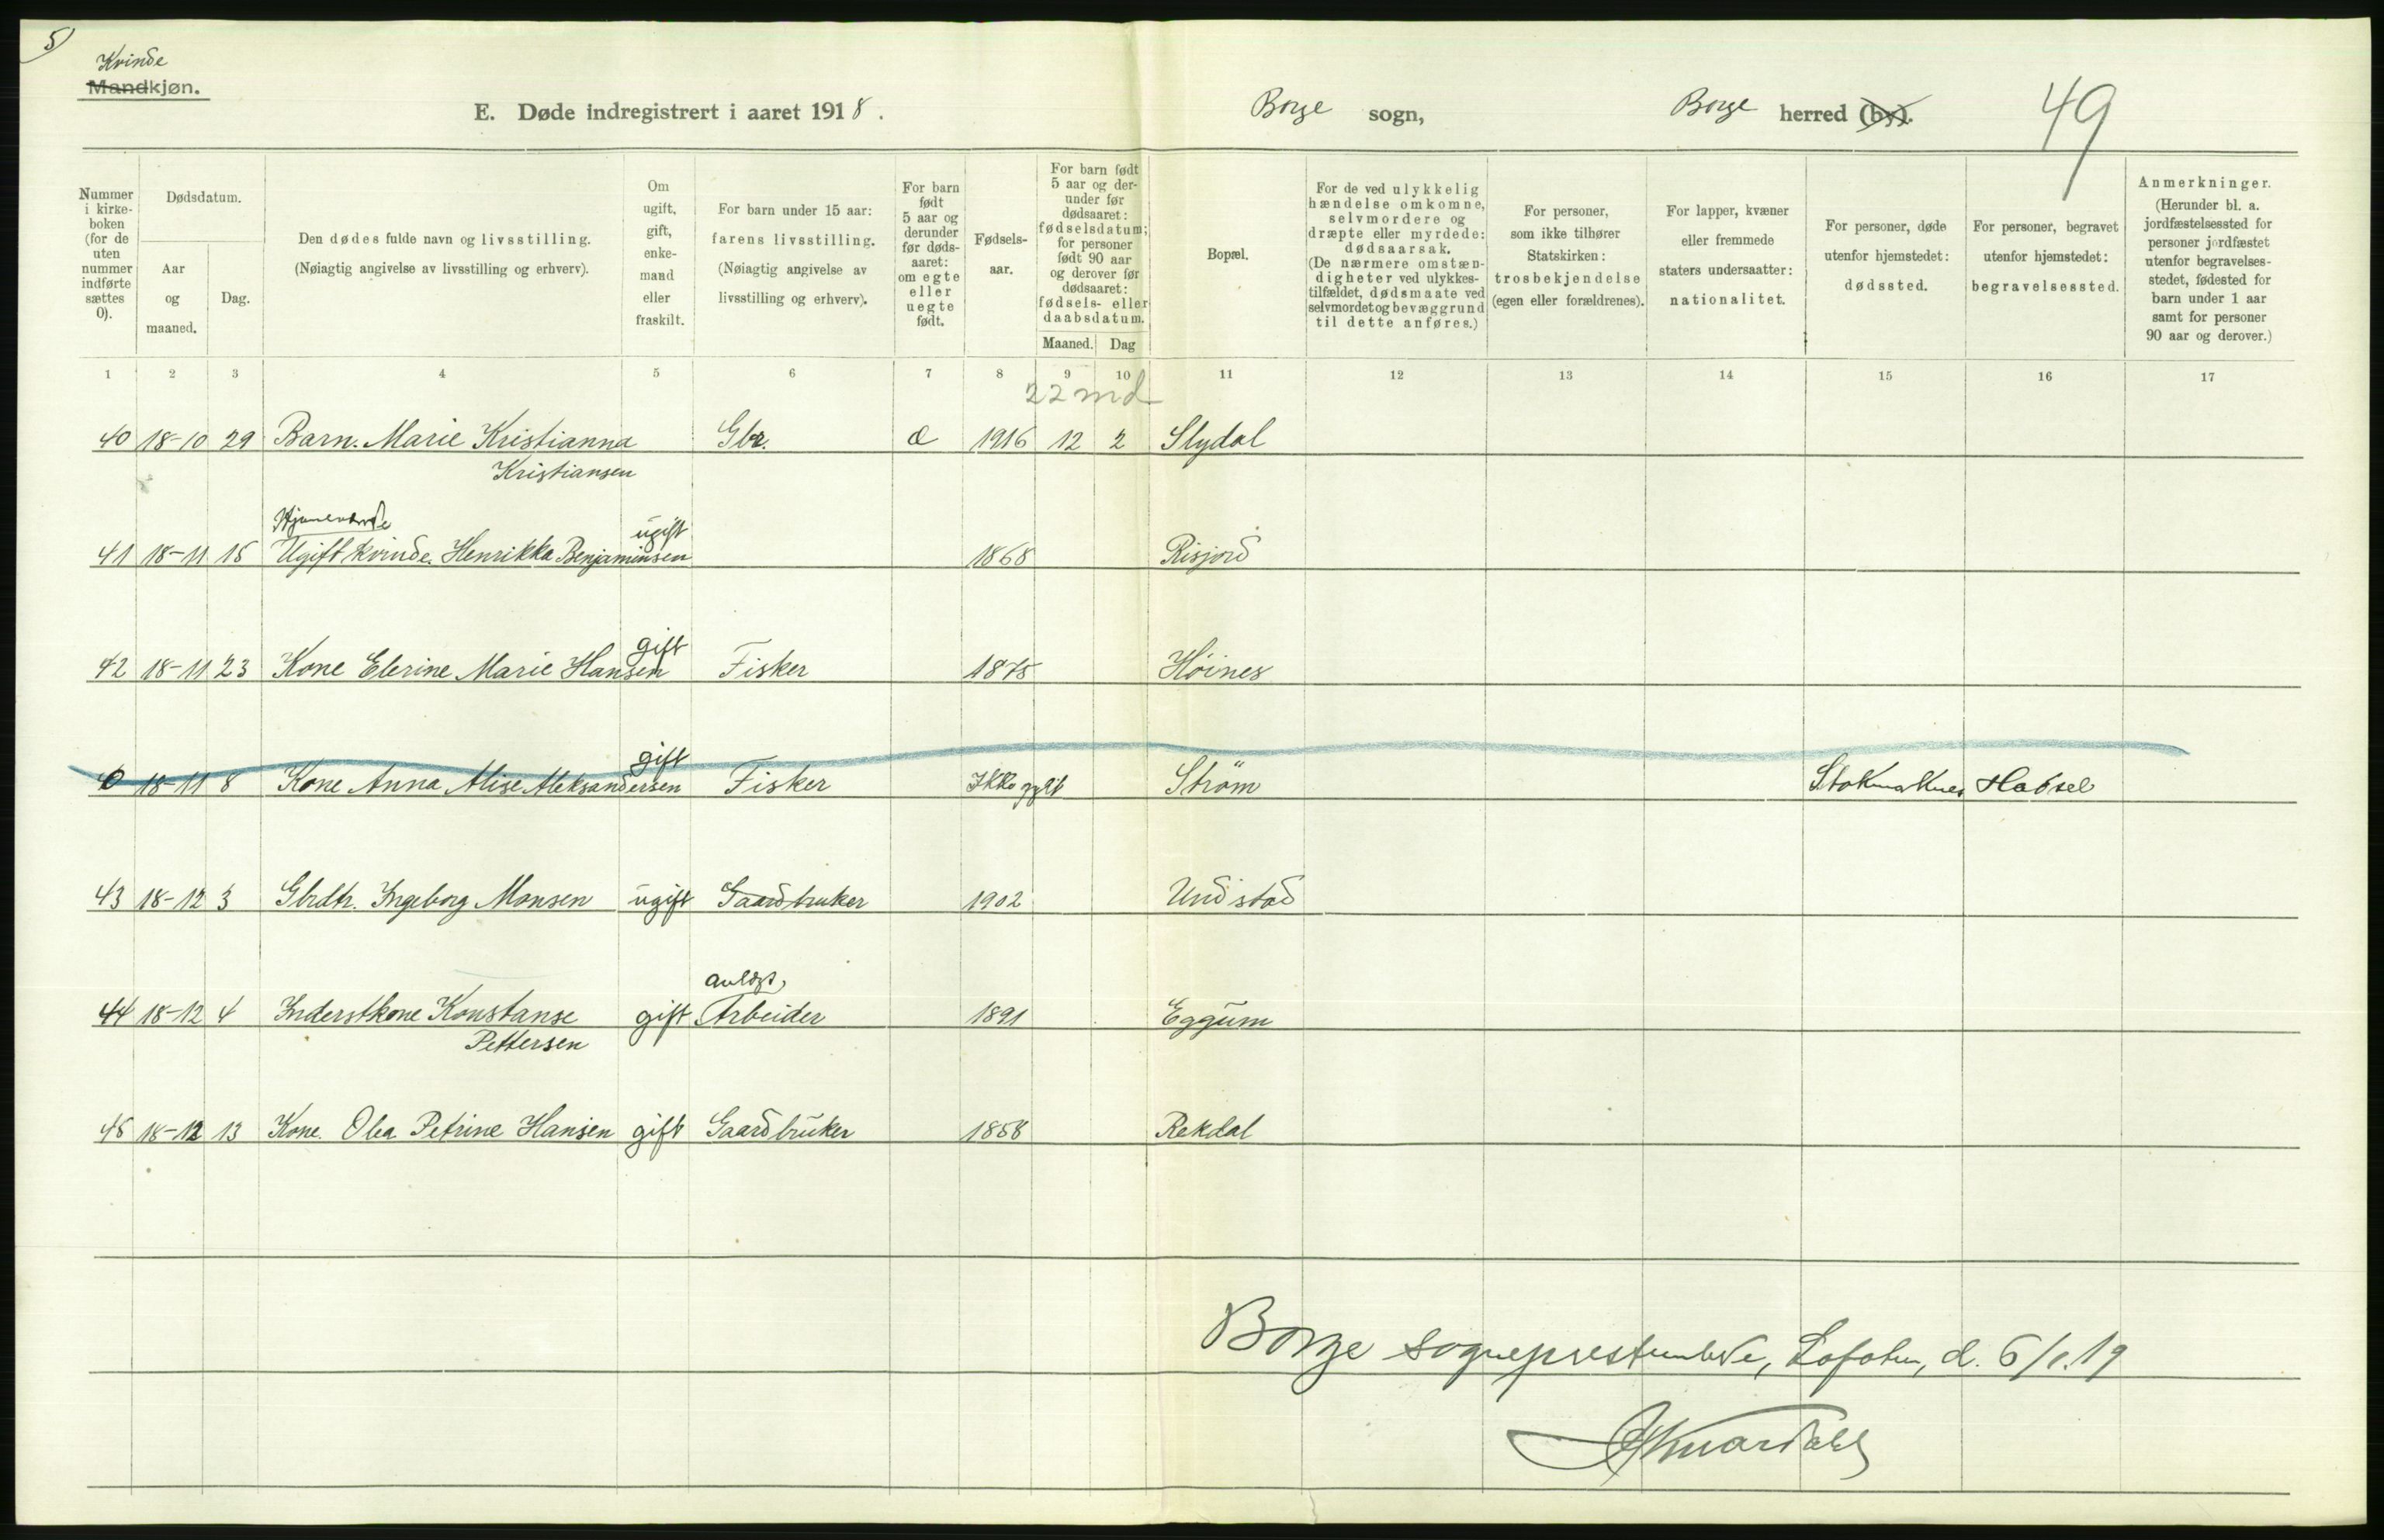 5)
Kvinde
Mandkjøn.
E. Døde indregistrert i aaret 1918.
Borge sogn,
Borge herred (by).
49
Nummer i kirkeboken (for de uten nummer indførte sættes 0).
Dødsdatum.
Aar og maaned.
Dag.
Den dødes fulde navn og livsstilling.
(Nøiagtig angivelse av livsstilling og erhverv).
Om ugift, gift, enkemand eller fraskilt.
For barn under 15 aar: farens livsstilling.
(Nøiagtig angivelse av livsstilling og erhverv).
For barn født 5 aar og derunder før dødsaaret: om egte eller uegte født.
Fødselsaar.
For barn født 5 aar og derunder før dødsaaret: fødselsdatum; for personer født 90 aar og derover før dødsaaret: fødsels- eller daabsdatum.
Maaned. Dag
Bopæl.
For de ved ulykkelig hændelse omkomne, selvmordere og dræpte eller myrdede: dødsaarsak.
(De nærmere omstændigheter ved ulykkestilfældet, dødsmaate ved selvmordet og bevæggrund til dette anføres.)
For personer, som ikke tilhører Statskirken: trosbekjendelse (egen eller forældrenes).
For lapper, kvæner eller fremmede staters undersaatter: nationalitet.
For personer, døde utenfor hjemstedet: dødssted.
For personer, begravet utenfor hjemstedet: begravelsessted.
Anmerkninger.
(Herunder bl. a. jordfæstelsessted for personer jordfæstet utenfor begravelsesstedet, fødested for barn under 1 aar samt for personer 90 aar og derover.)
1 2 3 4 5 6 7 8 9 10 11 12 13 14 15 16 17
22 md
40 18-10 29 Barn. Marie Kristianna Gbr. 1916 12 2 Slydal
Kristiansen
ugift
41 18-11 15 Ugift kvinde. Henrikka Benjaminsen 1868 Risjord
gift
42 18-11 23 Kone Elerine Marie Hansen Fisker 1875 Höines
gift
0 18-11 8 Kone Anna Alise Aleksandersen Fisker Ikke opgit Ström Stokmarknes Hadsel
43 18-12 3 Gbrdtr. Ingeborg Monsen ugift Gaardbruker 1902 Undstad
anlægs
44 18-12 4 Inderstkone Konstanse gift Arbeider 1891 Eggum
Pettersen
45 18-12 13 Kone. Olea Petrine Hansen gift Gaardbruker 1858 Rekdal
Borge sogneprestembede, Lofoten, d. 6/1.19